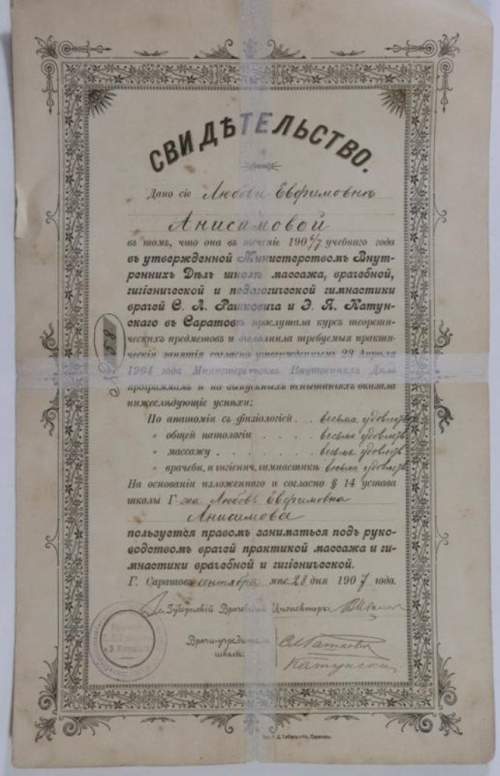 СВИДѢТЕЛЬСТВО.
Дано сіе Любови Евфимовнѣ
Анисимовой
въ томъ, что она въ теченіе 1906/7 учебнаго года
въ утвержденной Министерствомъ Внут-
реннихъ Дѣлъ школѣ массажа, врачебной,
гигіенической и педагогической гимнастики
врачей С. Л. Рашковича и Э. Я. Катун-
скаго въ Саратовѣ прослушала курсъ теорети-
ческихъ предметовъ и выполнила требуемыя практи-
ческія занятія согласно утвержденнымъ 22 Апрѣля
1904 года Министерствомъ Внутреннихъ Дѣлъ
программамъ и на выпускныхъ испытаніяхъ оказала
нижеслѣдующіе успѣхи:
По анатоміи съ физіологіей . . весьма удовлетв
" общей патологіи . . . . . весьма удовлетв
" массажу . . . . . весьма удовлетв
" врачебн. и гигіенич. гимнастикѣ весьма удовлетв
На основаніи изложеннаго и согласно § 14 устава
школы Г-жа Любовь Евфимовна
Анисимова
пользуется правомъ заниматься подъ руко-
водствомъ врачей практикой массажа и гим-
настики врачебной и гигіенической.
Г. Саратовъ сентября мѣс. 28 дня 1907 года.
Губернскій Врачебный Инспекторъ
Врачи-учредители
школы:
Катунскій